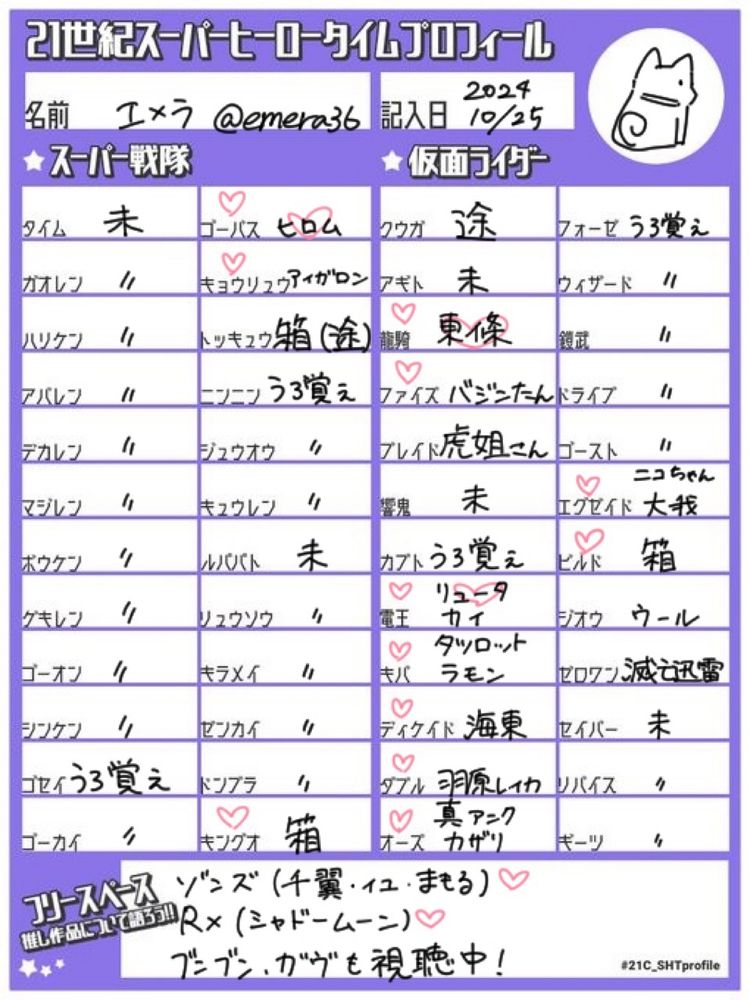 21世紀スーパーヒーロータイムプロフィール
名前 エメラ @emera36 記入日 2024 10/25
スーパー戦隊 仮面ライダー
タイム 未 ゴーバス ヒロム クウガ 途 フォーゼ うろ覚え
ガオレン 〃 キョウリュウ アイガロン アギト 未 ウィザード 〃
ハリケン 〃 トッキュウ 箱(途) 龍騎 東條 鎧武 〃
アバレン 〃 ニンニン うろ覚え ファイズ バジンたん ドライブ 〃
デカレン 〃 ジュウオウ 〃 ブレイド 虎姐さん ゴースト 〃
マジレン 〃 キュウレン 〃 響鬼 未 エグゼイド ニコちゃん 大我
ボウケン 〃 ルパパト 未 カブト うろ覚え ビルド 箱
ゲキレン 〃 リュウソウ 〃 電王 リュータ カイ ジオウ ウール
ゴーオン 〃 キラメイ 〃 キバ タツロット ラモン ゼロワン 滅亡迅雷
シンケン 〃 ゼンカイ 〃 ディケイド 海東 セイバー 未
ゴセイ うろ覚え ドンブラ 〃 ダブル 羽原レイカ リバイス 〃
ゴーカイ 〃 キングオ 箱 オーズ 真アンク カザリ ギーツ 〃
フリースペース
推し作品について語ろう!!
ゾンズ(千翼・イユ・まもる)
RX(シャドームーン)
ブンブン、ガヴも視聴中!
#21C_SHTprofile